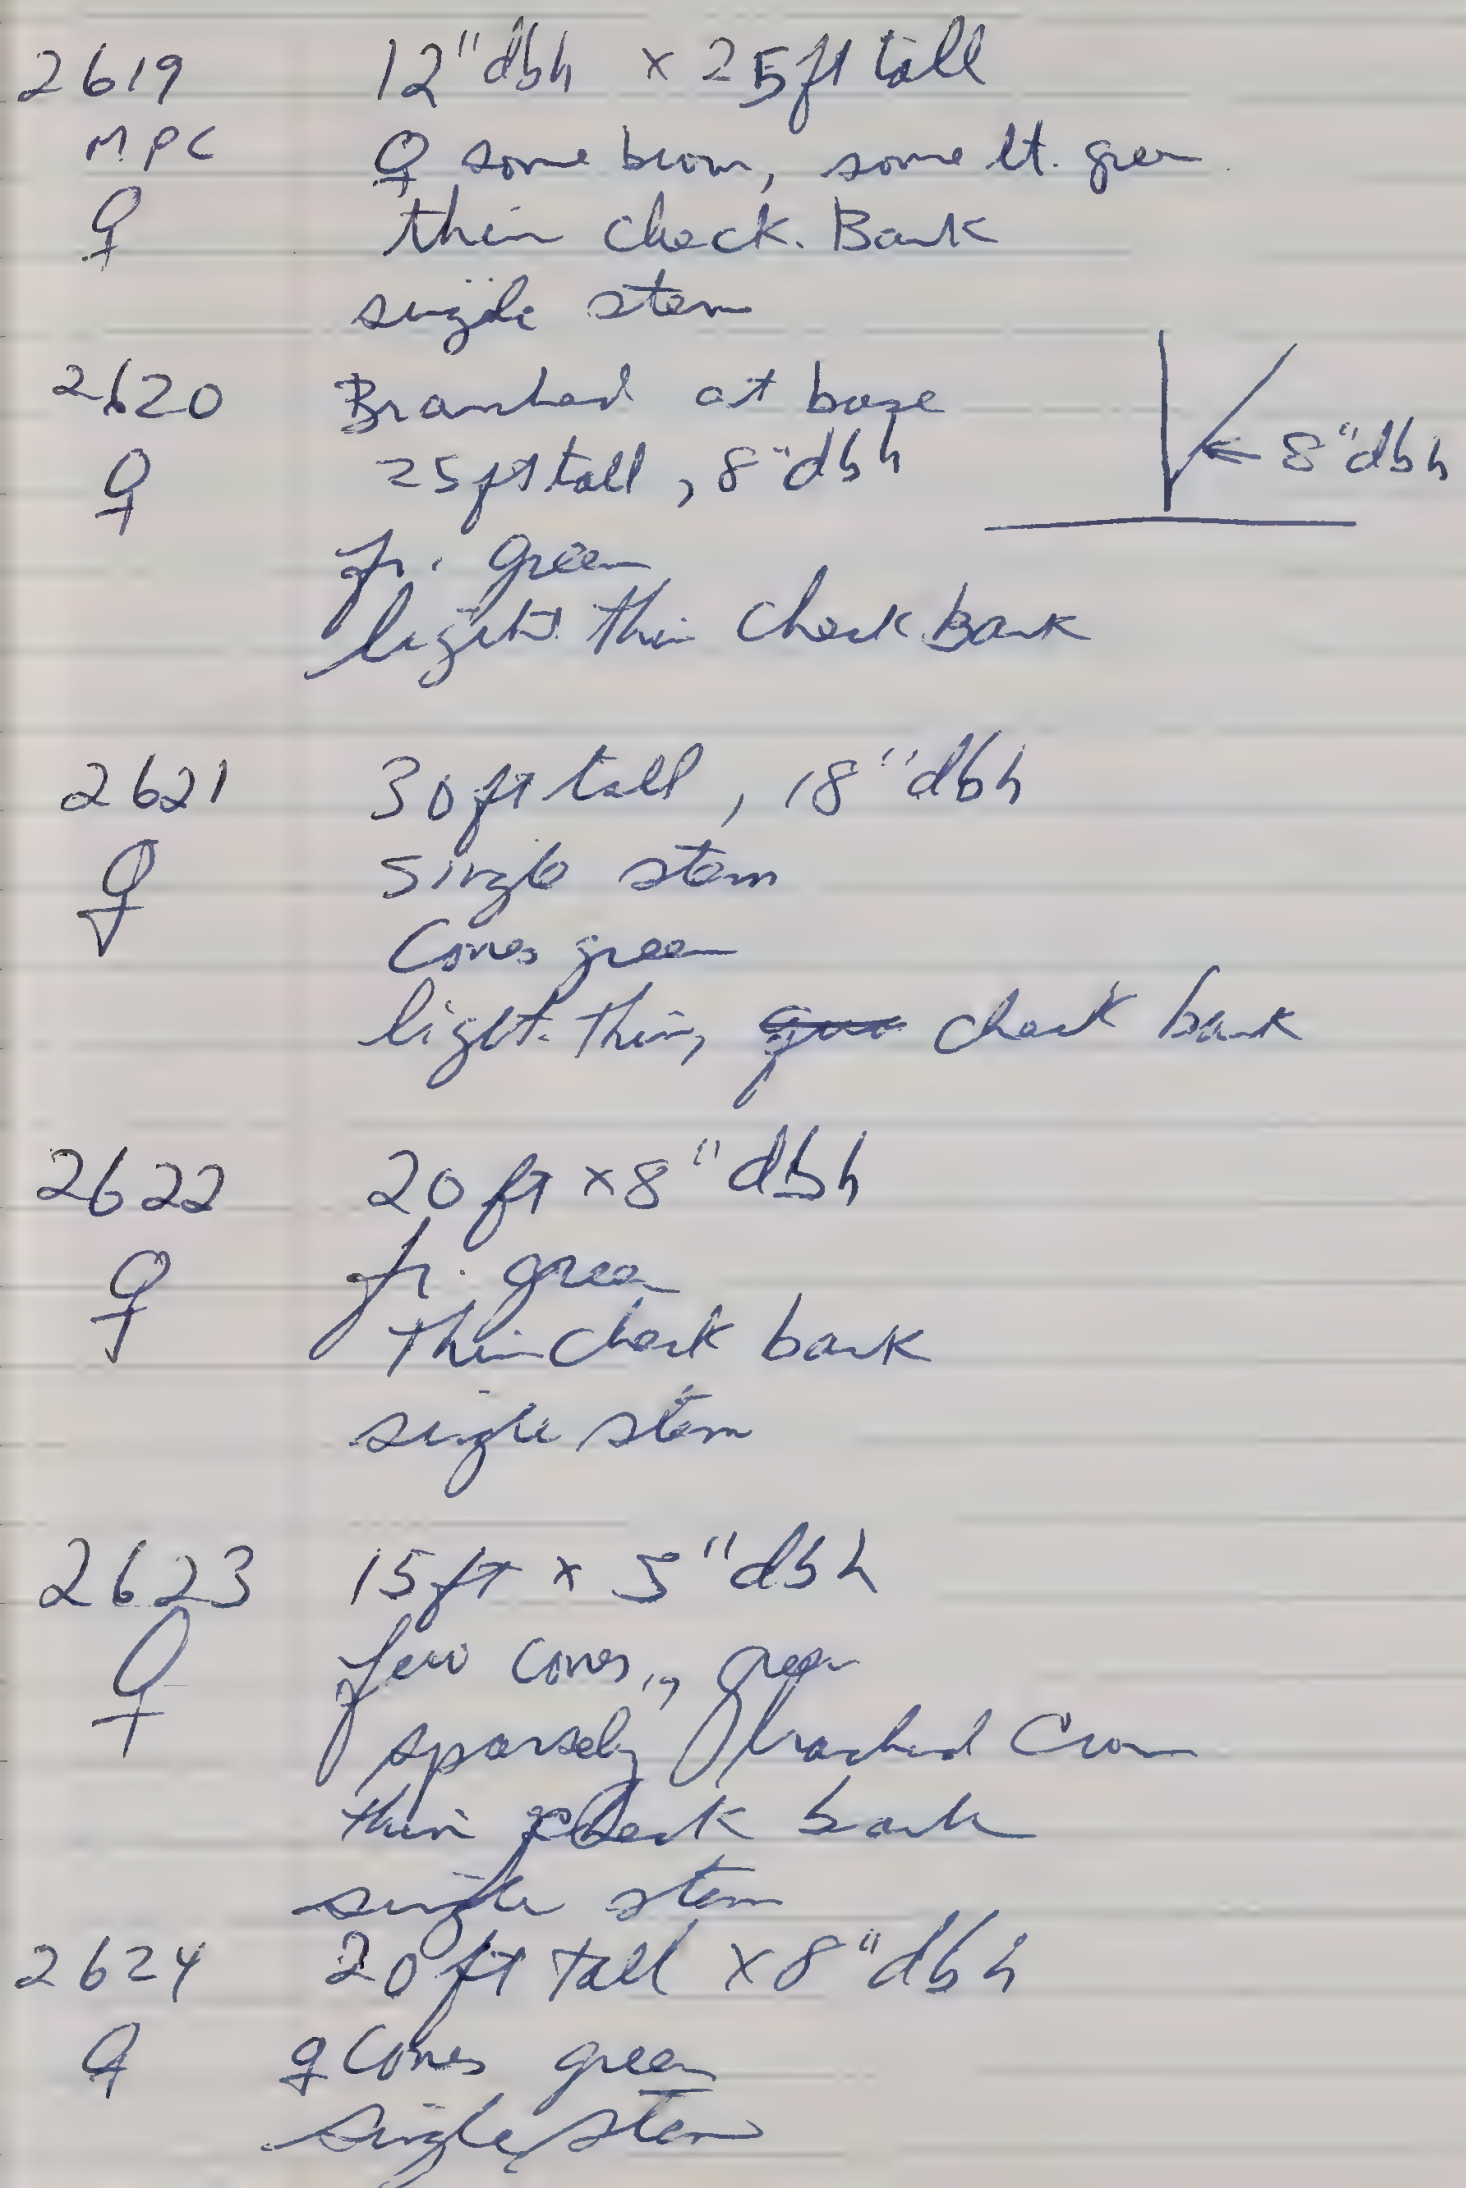 2619 12" dbh x 25 ft tall
MPC ♀ some brown, some lt. green
♀ thin check. Bark
single stem
2620 Branched at base
♀ 25 ft tall, 8" dbh ← 8" dbh
fr. green
light thin check Bark
2621 30 ft tall, 18" dbh
♀ single stem
Cones green
light thin, check bark
2622 20 ft x 8" dbh
♀ fr. green
thin check bark
single stem
2623 15 ft x 5" dbh
♀ few cones, green
sparsely branched Crown
thin check bark
single stem
2624 20 ft tall x 8" dbh
♀ ♀ Cones green
single stem